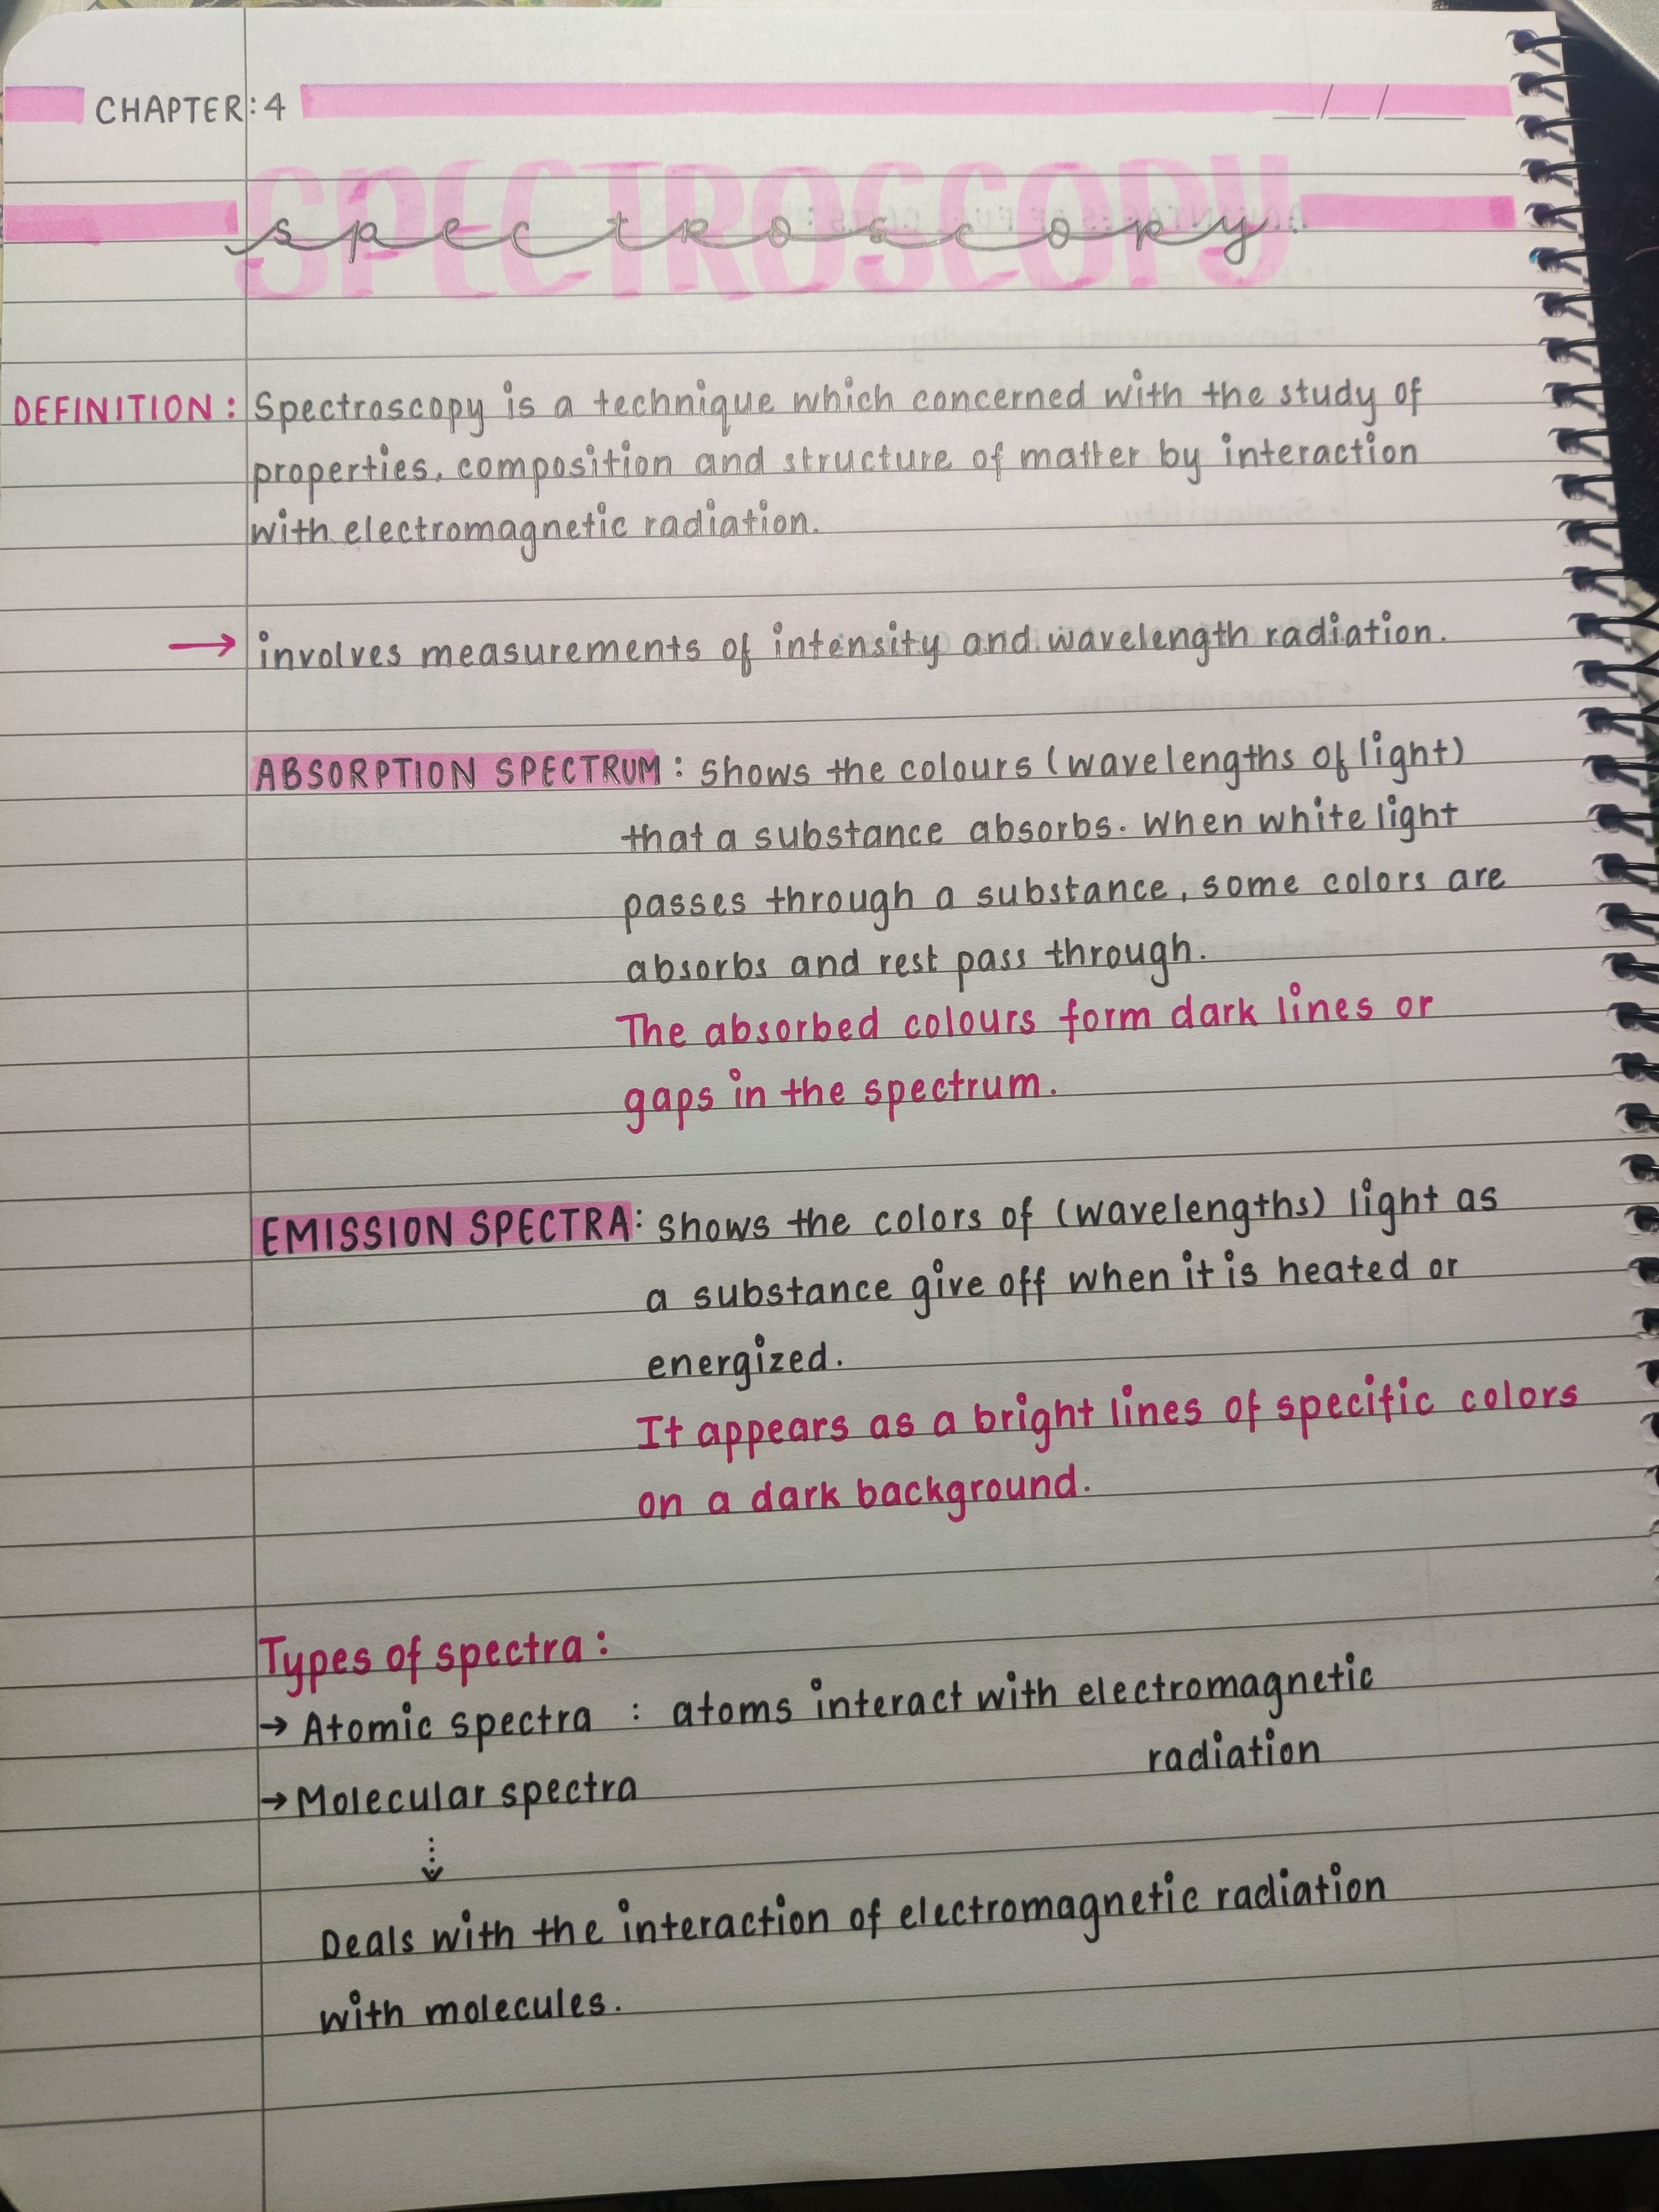 CHAPTER: 4
__/__/____
SPECTROSCOPY
spectroscopy
DEFINITION: Spectroscopy is a technique which concerned with the study of
properties, composition and structure of matter by interaction
with electromagnetic radiation.
→ involves measurements of intensity and wavelength radiation.
ABSORPTION SPECTRUM: shows the colours (wavelengths of light)
that a substance absorbs. When white light
passes through a substance, some colors are
absorbs and rest pass through.
The absorbed colours form dark lines or
gaps in the spectrum.
EMISSION SPECTRA: shows the colors of (wavelengths) light as
a substance give off when it is heated or
energized.
It appears as a bright lines of specific colors
on a dark background.
Types of spectra:
→ Atomic spectra : atoms interact with electromagnetic
radiation
→ Molecular spectra
Deals with the interaction of electromagnetic radiation
with molecules.